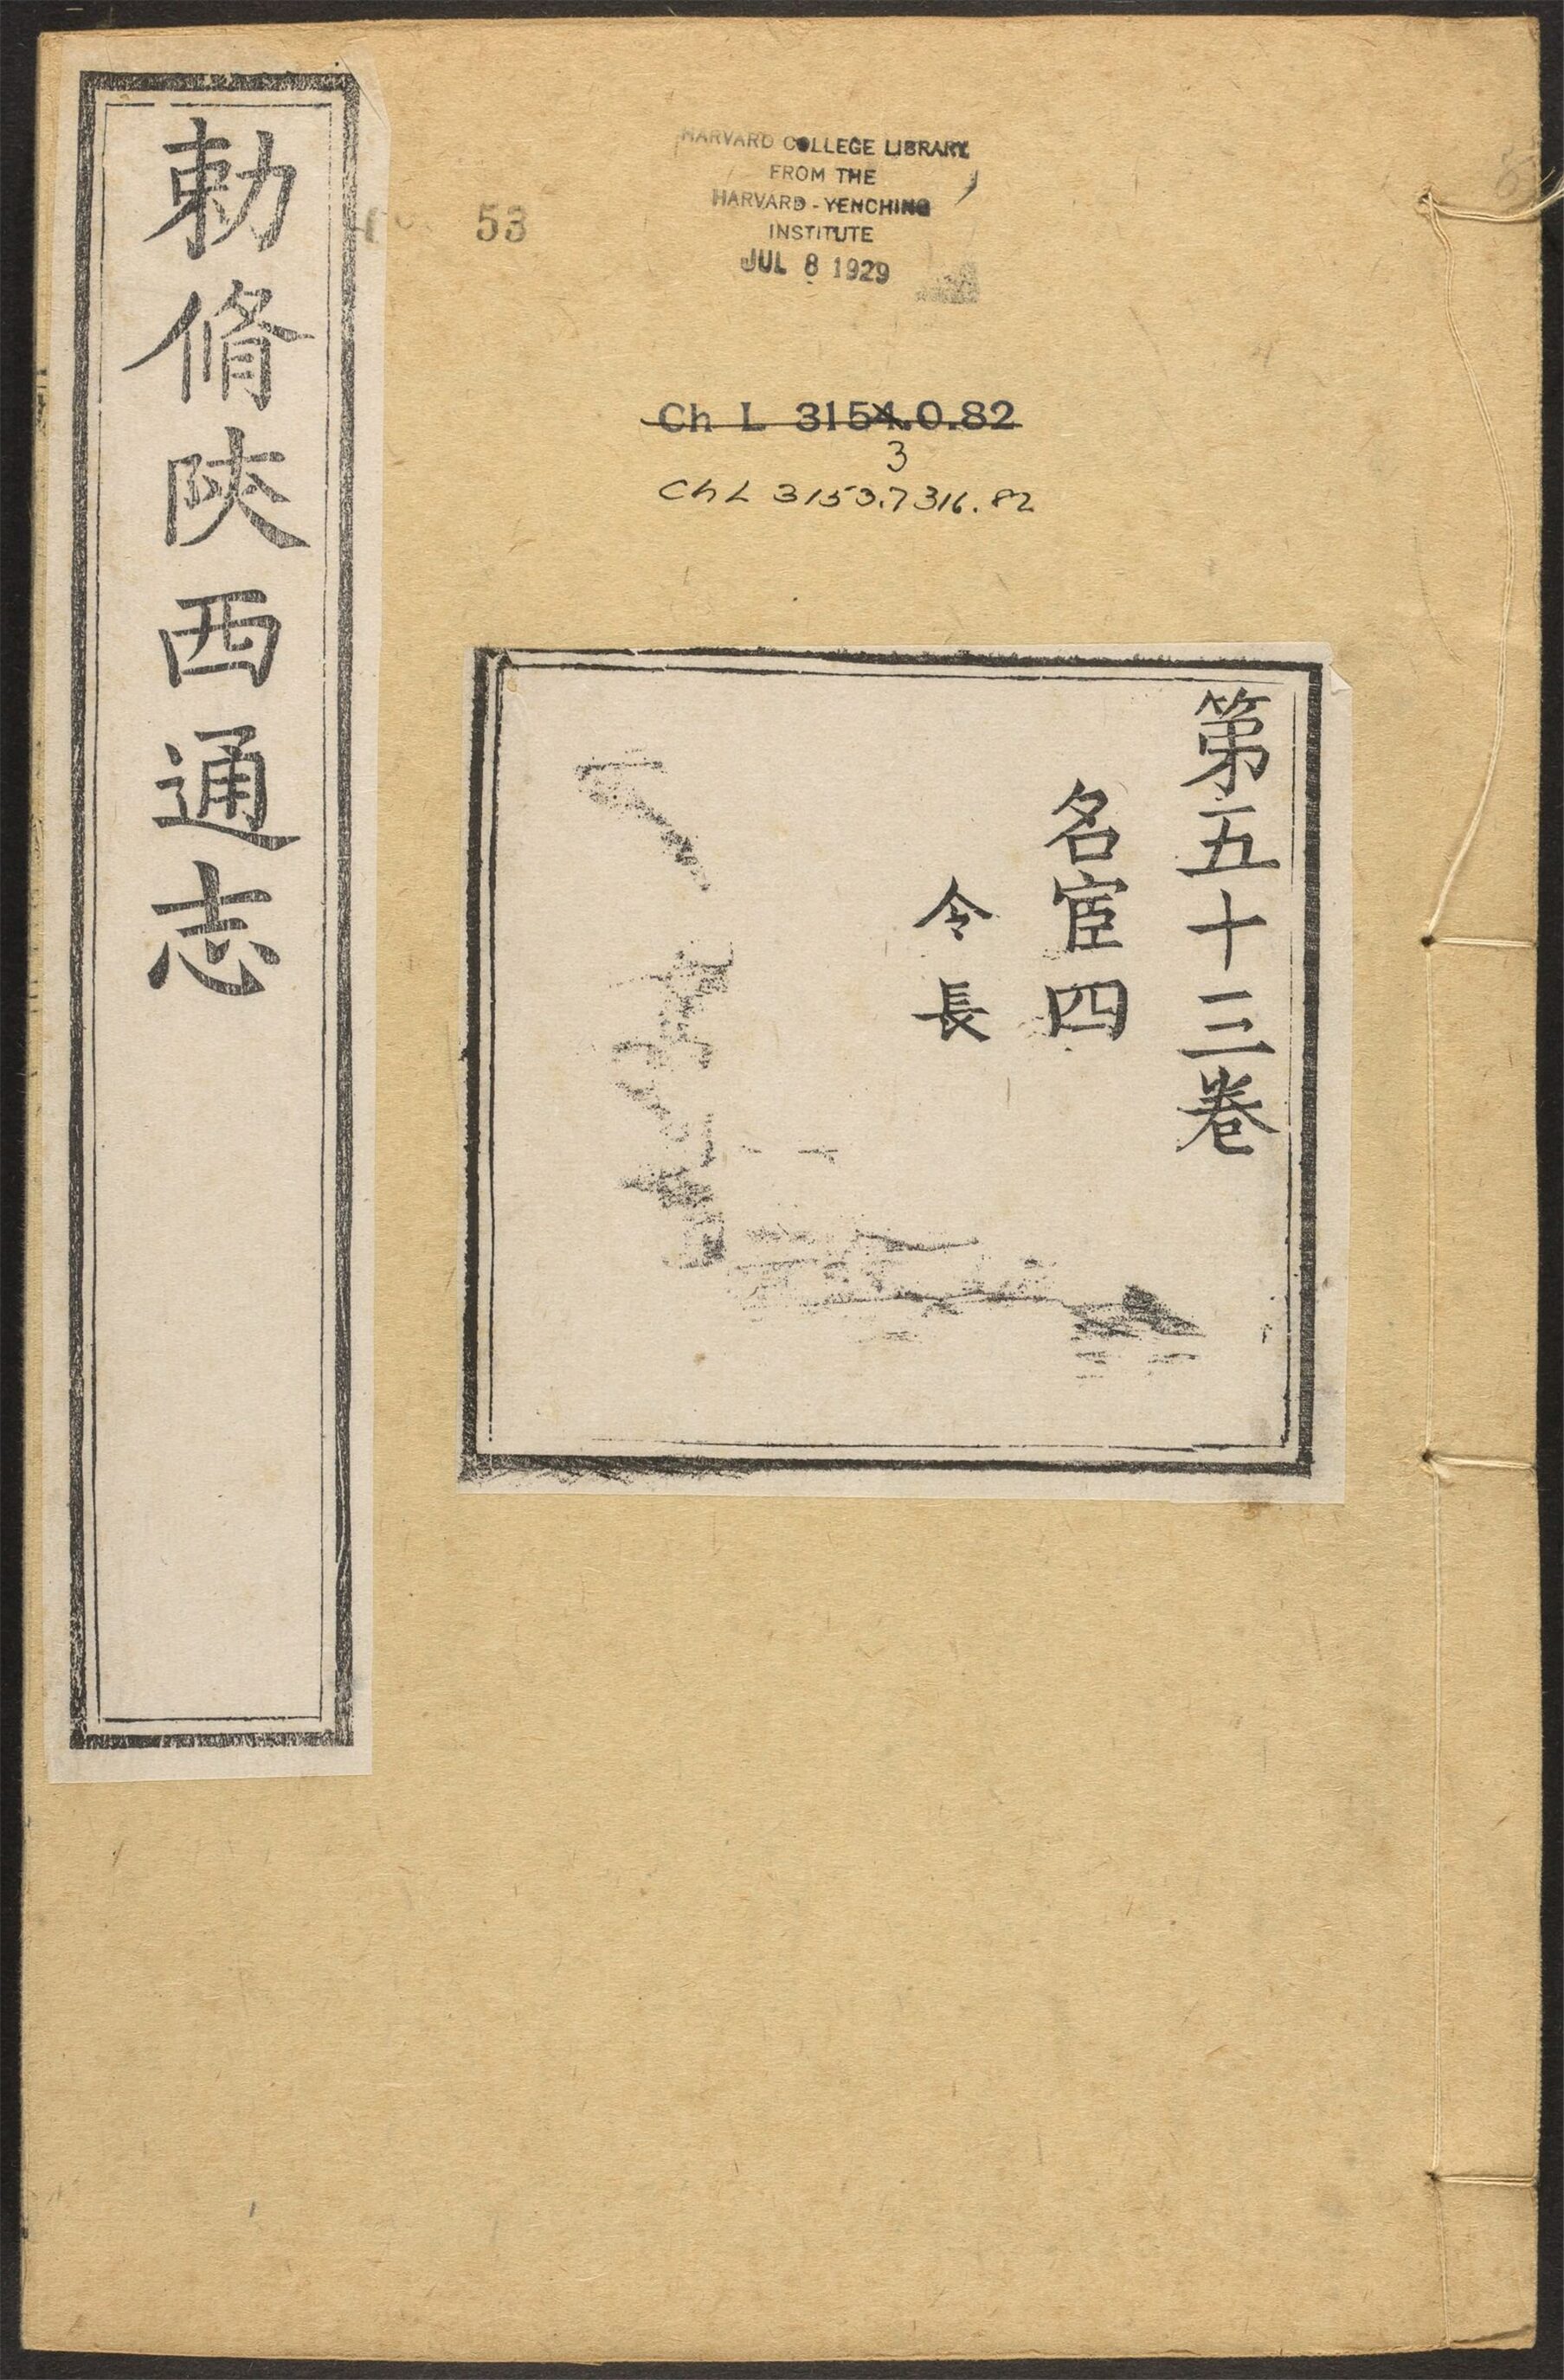 勅脩陝西通志
53
HARVARD COLLEGE LIBRARY
FROM THE
HARVARD-YENCHING
INSTITUTE
JUL 8 1929
Ch L 3154.0.82
3
Ch L 3153.7316.82
第五十三卷
名宦四
令長